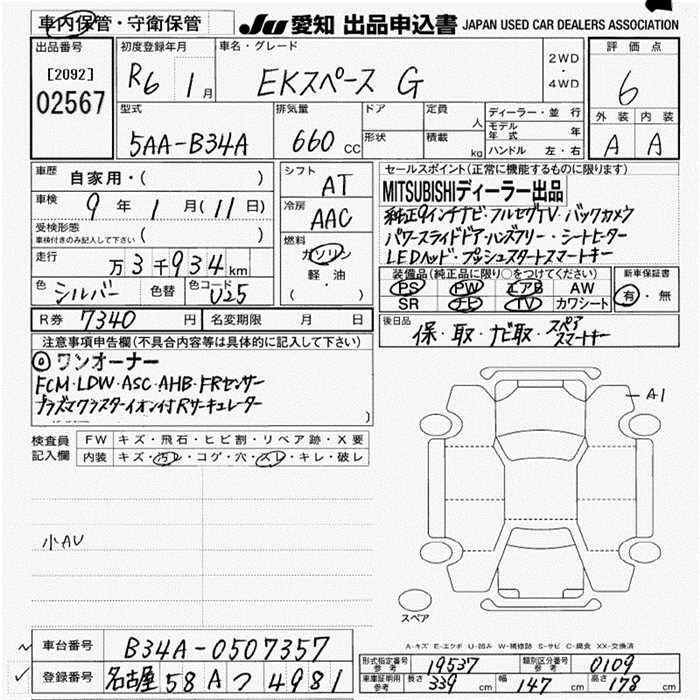 車内保管・守衛保管 JU 愛知 出品申込書 JAPAN USED CAR DEALERS ASSOCIATION
出品番号 初度登録年月 車名・グレード 2WD・4WD 評価点
[2092] R6 1月 EKスペース G 6
02567 外装 内装
型式 排気量 ドア 定員 人 ディーラー・並行
モデル年式 年
5AA-B34A 660 CC 形状 積載 kg ハンドル 左・右 A A
車歴 自家用・( ) シフト AT セールスポイント(正常に機能するものに限り)
MITSUBISHIディーラー出品
車検 9年 1月 (11日) 冷房 AAC 純正9インチナビ・フルセグTV・バックカメラ
受検形態 車検付きのみ記入して下さい ( ) パワースライドドア・ハンズフリー・シートヒーター
燃料 ガソリン 軽油 ( ) LEDヘッド・プッシュスタートスマートキー
走行 万3千934km 装備品(純正品に限り○をつけてください) 新車保証書
色 シルバー 色替 色コード U25 PS PW エアB AW 有・無
SR ナビ TV カワシート
R券 7340円 名変期限 月 日 後日品 保・取・ナビ取・スペアスマートキー
注意事項申告欄(不具合内容等は具体的に記入して下さい)
◎ワンオーナー
FCM・LDW・ASC・AHB・FRセンサー
プラズマクラスターイオン付Rサーキュレーター
)
A1
検査員記入欄 FW キズ・飛石・ヒビ割・リペア跡・X要
内装 キズ・汚レ・コゲ・穴・スレ・キレ・破レ
小AU
スペア
A-キズ E-エクボ U-凹み W-補修跡 S-サビ C-腐食 XX-交換済
車台番号 B34A-0507357
登録番号 名古屋 58A つ 4981
型式指定番号 参考 19537 類別区分番号 参考 0109
車庫証明用 参考 長さ 339cm 幅 147cm 高さ 178cm